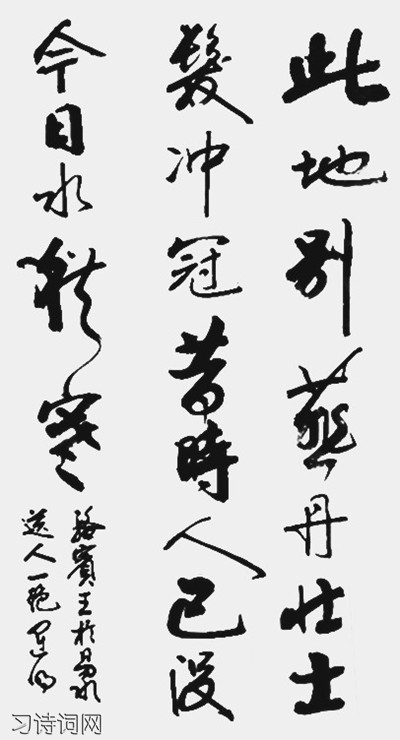 此地别燕丹壮士
髮冲冠昔時人已没
今日水犹寒
駱賓王於易水
送人一绝
习诗词网